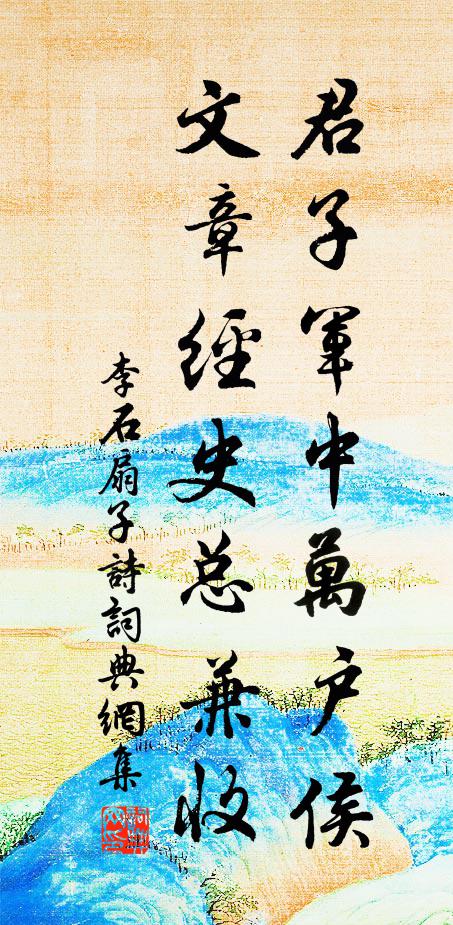 君子軍中萬户侯
文章經史总兼收
李石扇子詩詞典網集